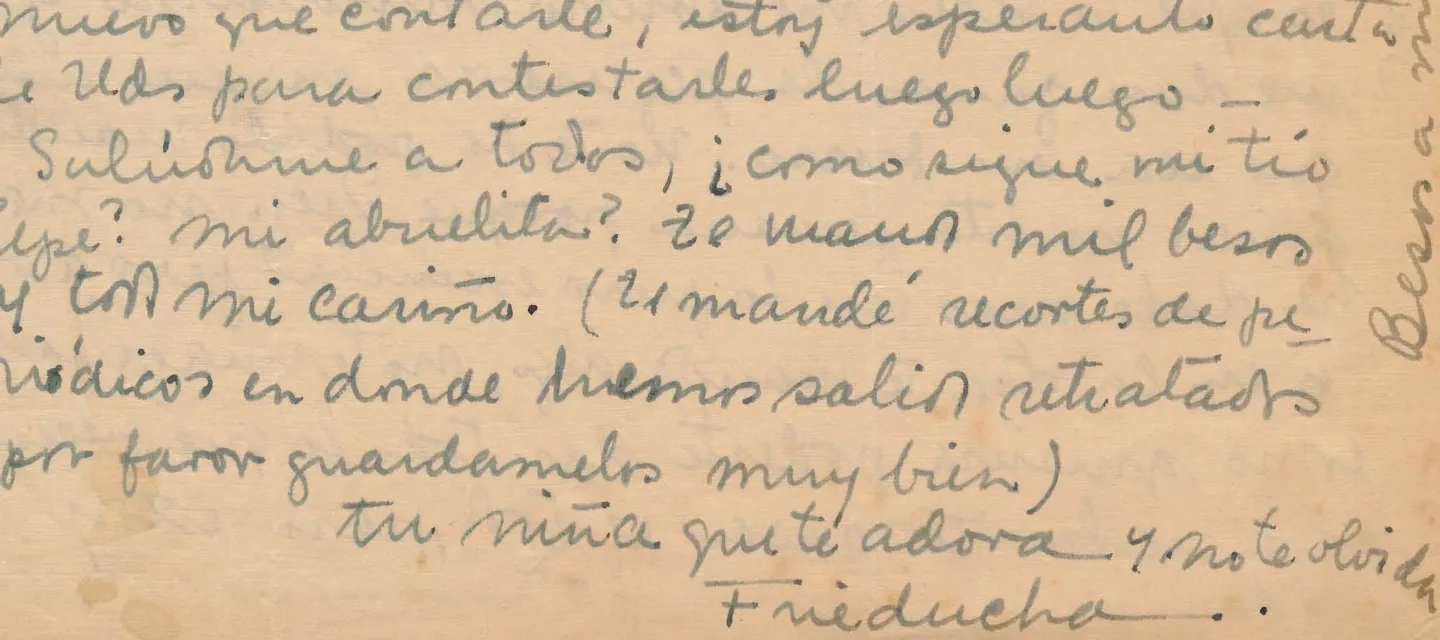 nuevo que contarte, estoy esperando carta
de Uds para contestarles luego luego –
Salúdame a todos, ¿como sigue mi tío
Pepe? mi abuelita? Te mando mil besos
y todo mi cariño. (Te mandé recortes de pe
riódicos en donde hemos salido retratados
por favor guardamelos muy bien)
tu niña que te adora y no te olvida
Frieducha . .
Besos a